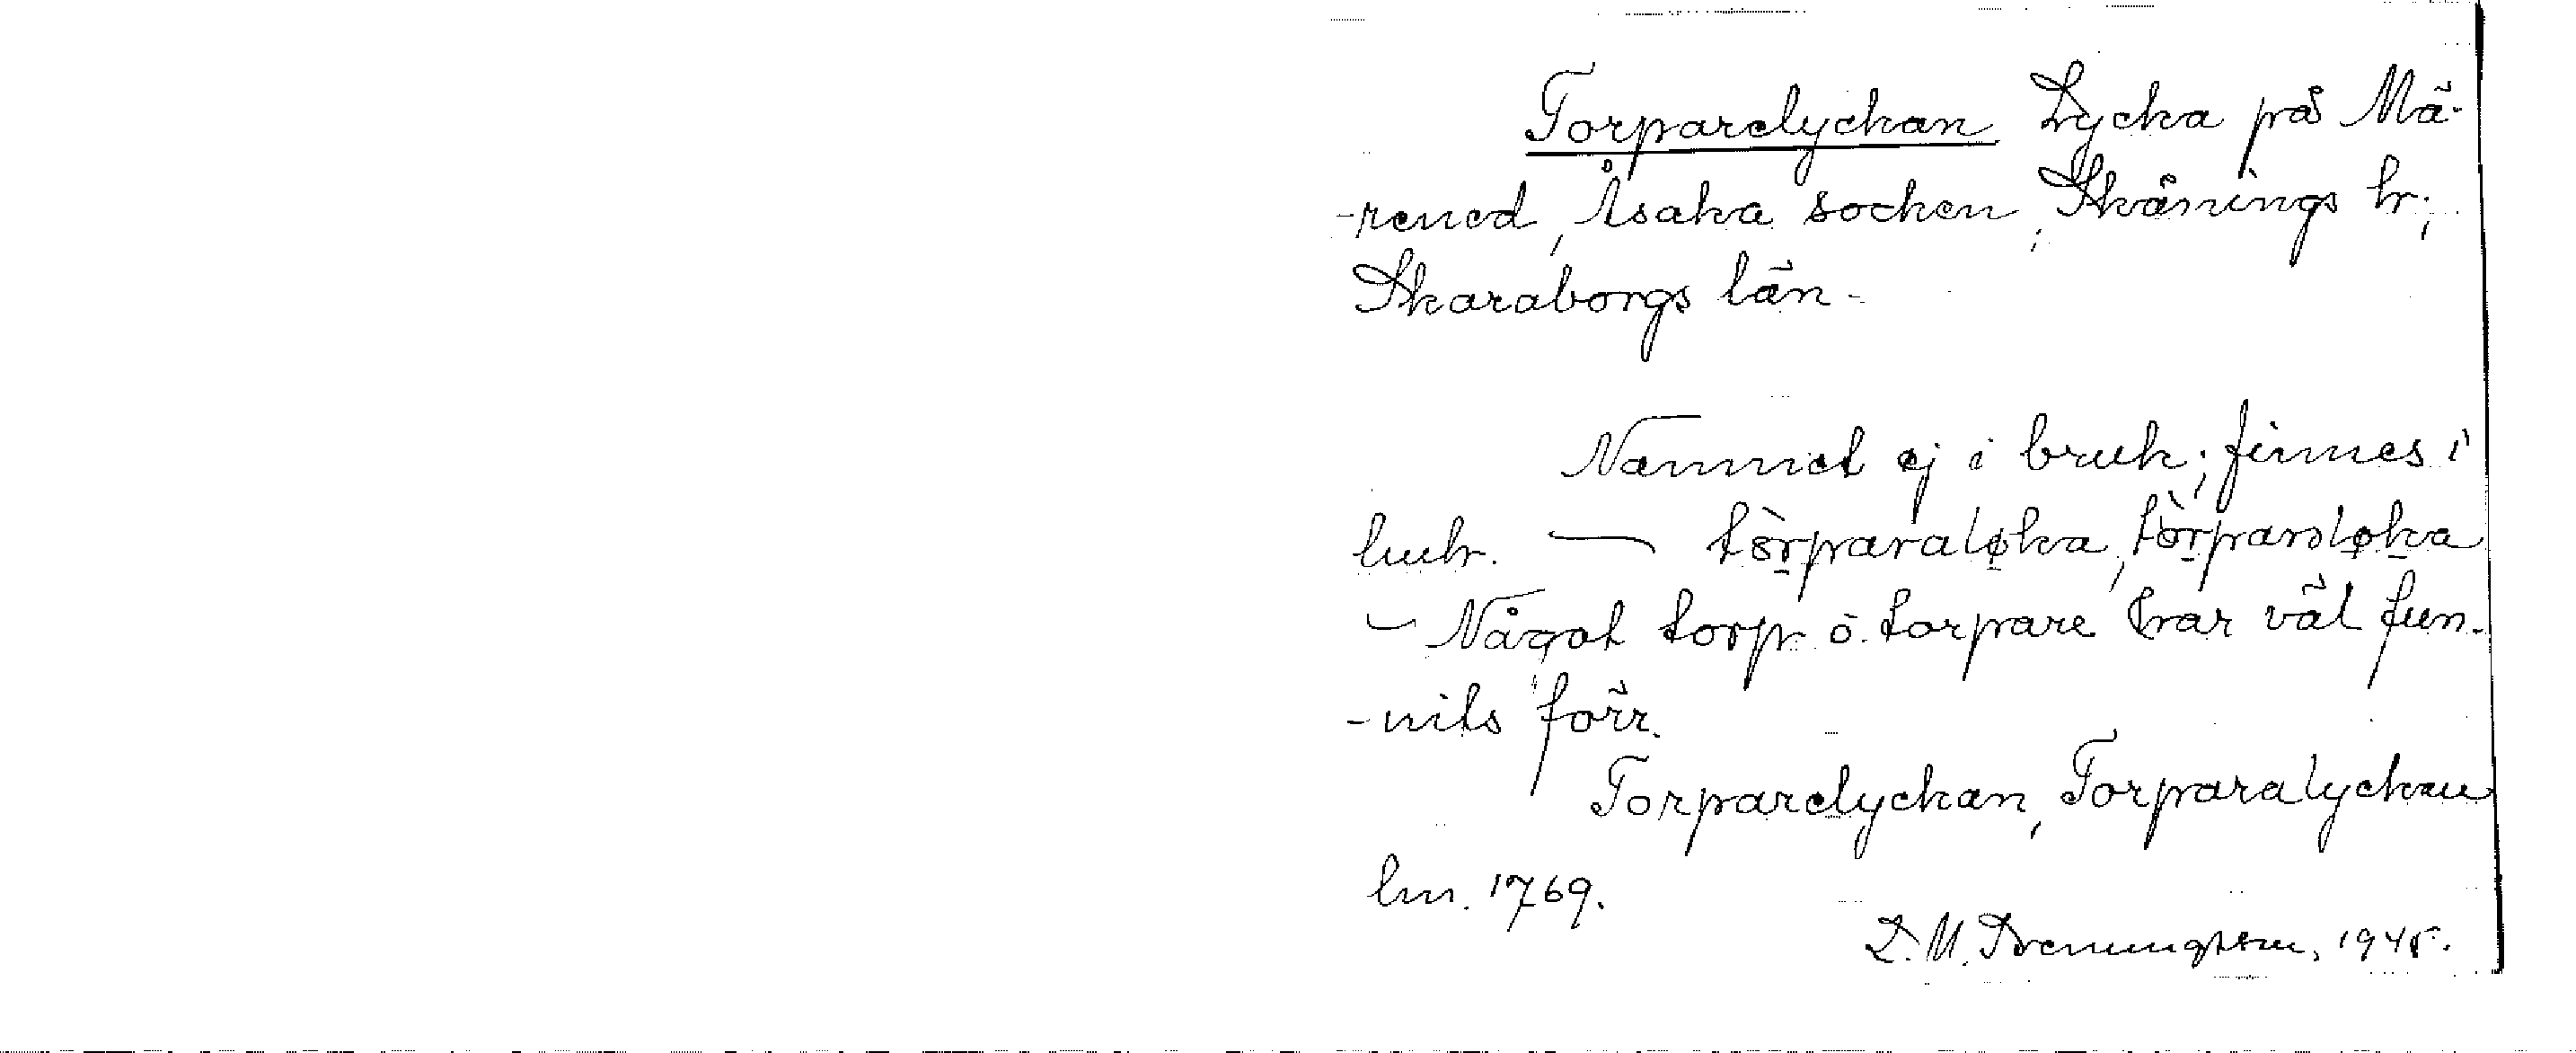 Torparelyckan Lycka på Mä-
-rened, Åsaka socken, Skånings hr,
Skaraborgs län.
Namnet ej i bruk; finnes i
— tòrparaløka, tòrparsløka
- Något torp o. torpare har väl fun-
-nits förr.
Torparelyckan, Torparalyckan
lm. 1769.
1945.